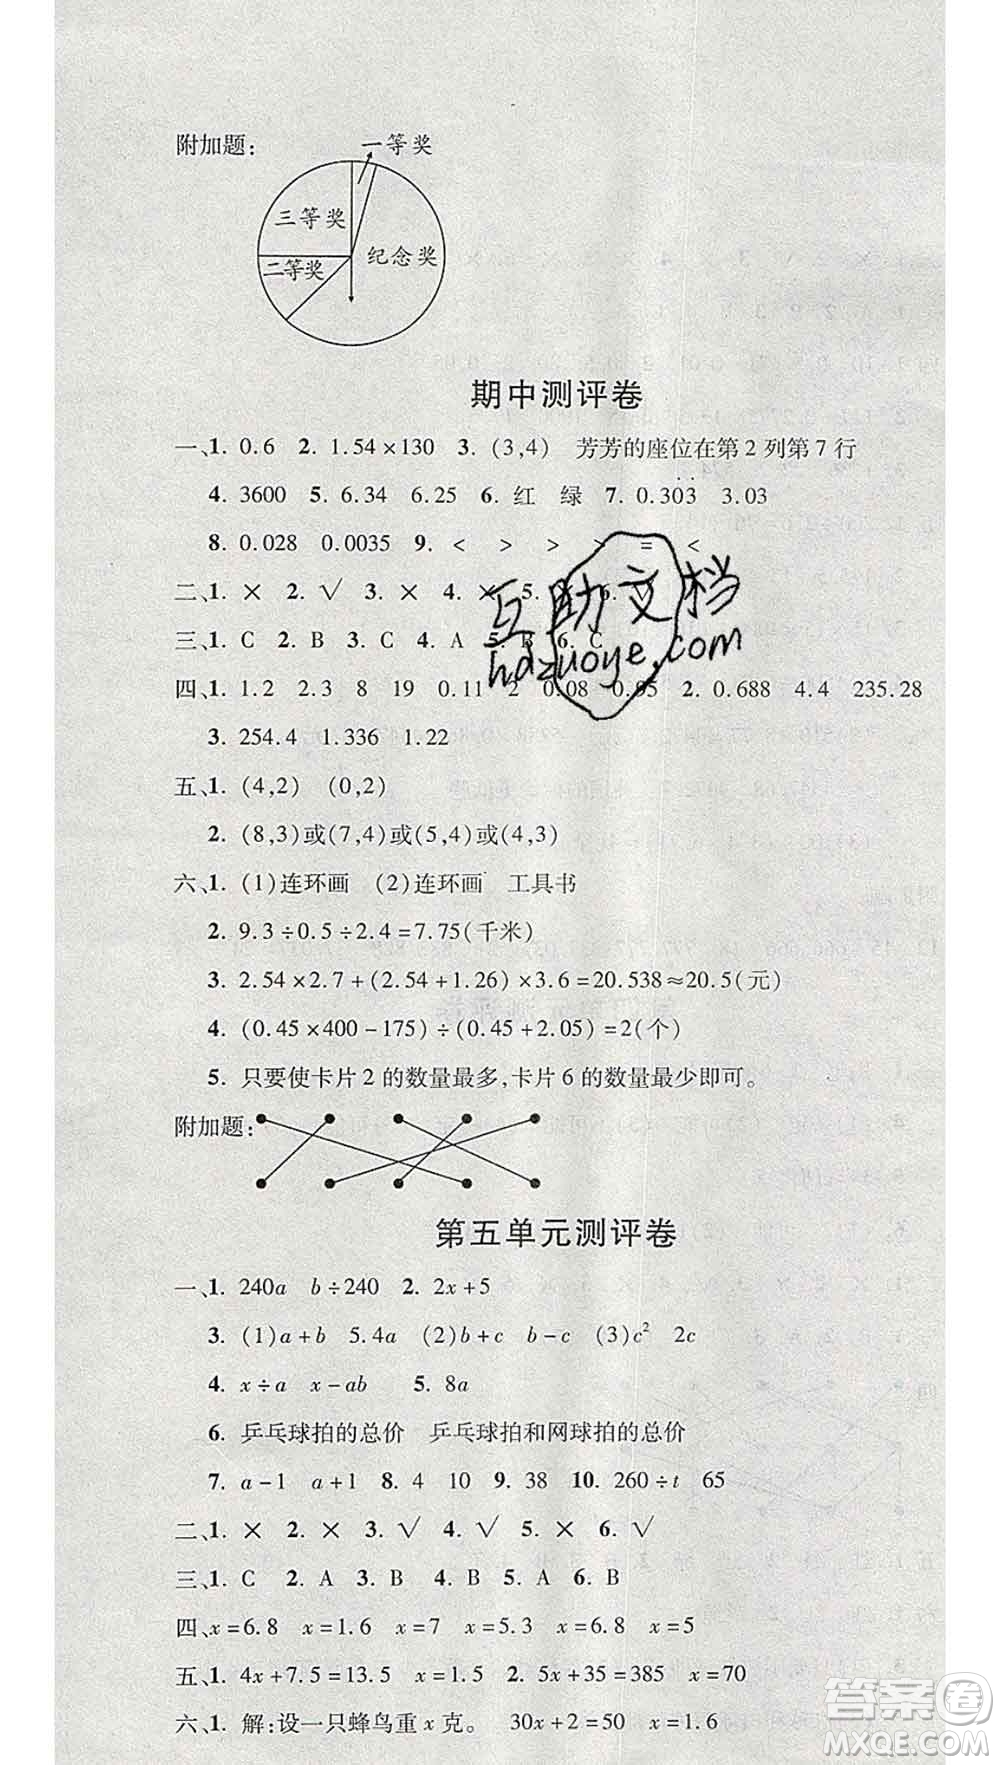 附加题:
一等奖
三等奖
纪念奖
二等奖
期中测评卷
一、1. 0.6 2. 1.54×130 3. (3,4) 芳芳的座位在第2列第7行
4. 3600 5. 6.34 6.25 6. 红 绿 7. 0.3̇03̇ 3.03
8. 0.028 0.0035 9. < > > > = <
二、1. × 2. √ 3. × 4. × 5. 6.
三、1. C 2. B 3. C 4. A 5. B 6. C
四、1. 1.2 2.3 8 19 0.11 2 0.08 0.95 2. 0.688 4.4 235.28
3. 254.4 1.336 1.22
五、1. (4,2) (0,2)
2. (8,3)或(7,4)或(5,4)或(4,3)
六、1. (1)连环画 (2)连环画 工具书
2. 9.3÷0.5÷2.4=7.75(千米)
3. 2.54×2.7+(2.54+1.26)×3.6=20.538≈20.5(元)
4. (0.45×400-175)÷(0.45+2.05)=2(个)
5. 只要使卡片2的数量最多,卡片6的数量最少即可。
附加题:
第五单元测评卷
一、1. 240a b÷240 2. 2x+5
3. (1)a+b 5.4a (2)b+c b-c (3)c² 2c
4. x÷a x-ab 5. 8a
6. 乒乓球拍的总价 乒乓球拍和网球拍的总价
7. a-1 a+1 8. 4 10 9. 38 10. 260÷t 65
二、1. × 2. × 3. √ 4. √ 5. × 6. √
三、1. C 2. A 3. B 4. B 5. A 6. B
四、x=6.8 x=1.6 x=7 x=5.3 x=5
五、1. 4x+7.5=13.5 x=1.5 2. 5x+35=385 x=70
六、1. 解:设一只蜂鸟重x克。 30x+2=50 x=1.6
互助文档
hdzuoye.com
答案卷
MXQE.COM